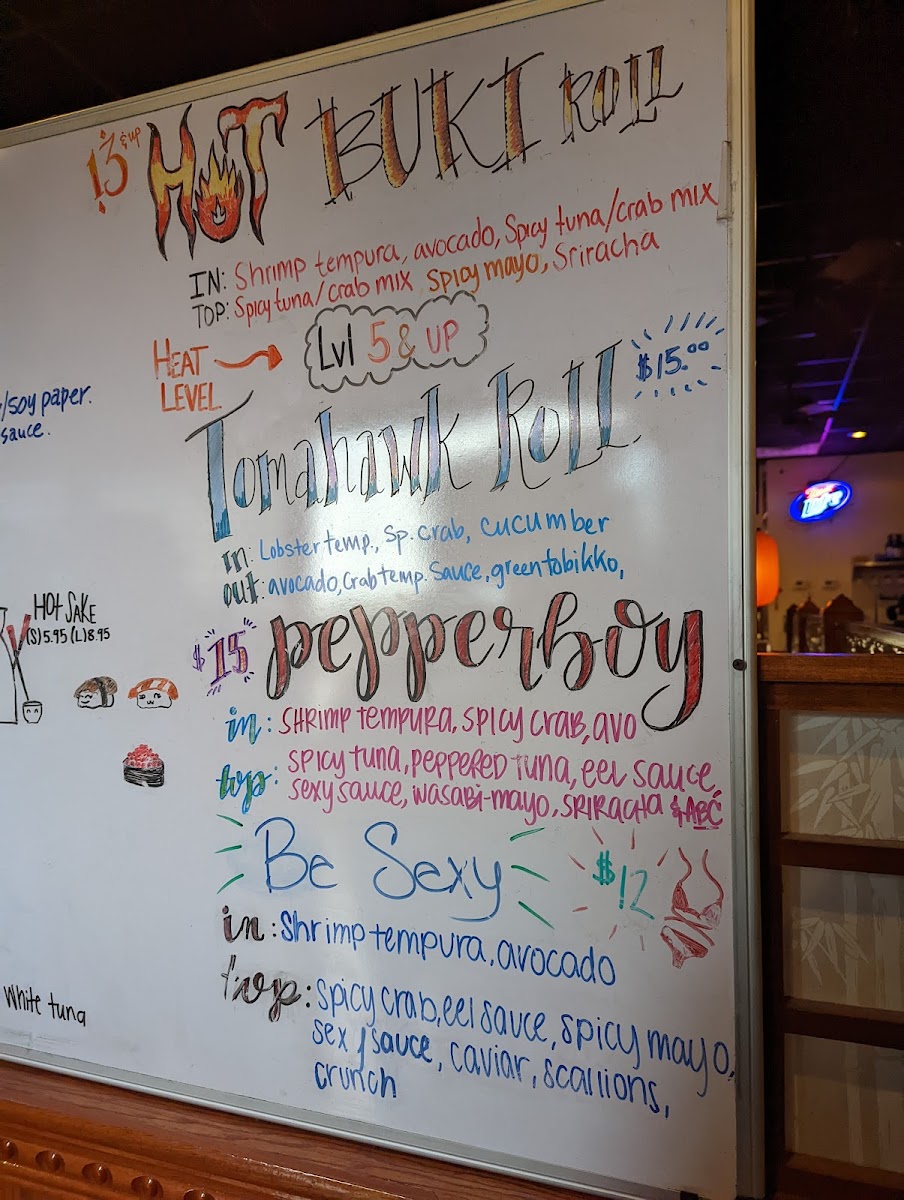 13 & up HOT BUKI ROLL
IN: Shrimp tempura, avocado, Spicy tuna/crab mix
TOP: Spicy tuna/crab mix Spicy mayo, Sriracha
HEAT LEVEL → Lvl 5 & UP
Tomahawk Roll $15.00
in: Lobster temp., Sp. crab, cucumber
out: avocado, Crab temp. Sauce, green tobikko,
$15 pepperboy
in: SHRIMP TEMPURA, SPICY CRAB, AVO
top: SPICY TUNA, PEPPERED TUNA, EEL SAUCE,
SEXY SAUCE, WASABI-MAYO, SRIRACHA & ABC
Be Sexy $12
in: Shrimp tempura, avocado
top: spicy crab, eel sauce, spicy mayo,
sexy sauce, caviar, scallions,
crunch
/soy paper.
sauce.
HOT SAKE
(S) 5.95 (L) 8.95
White tuna